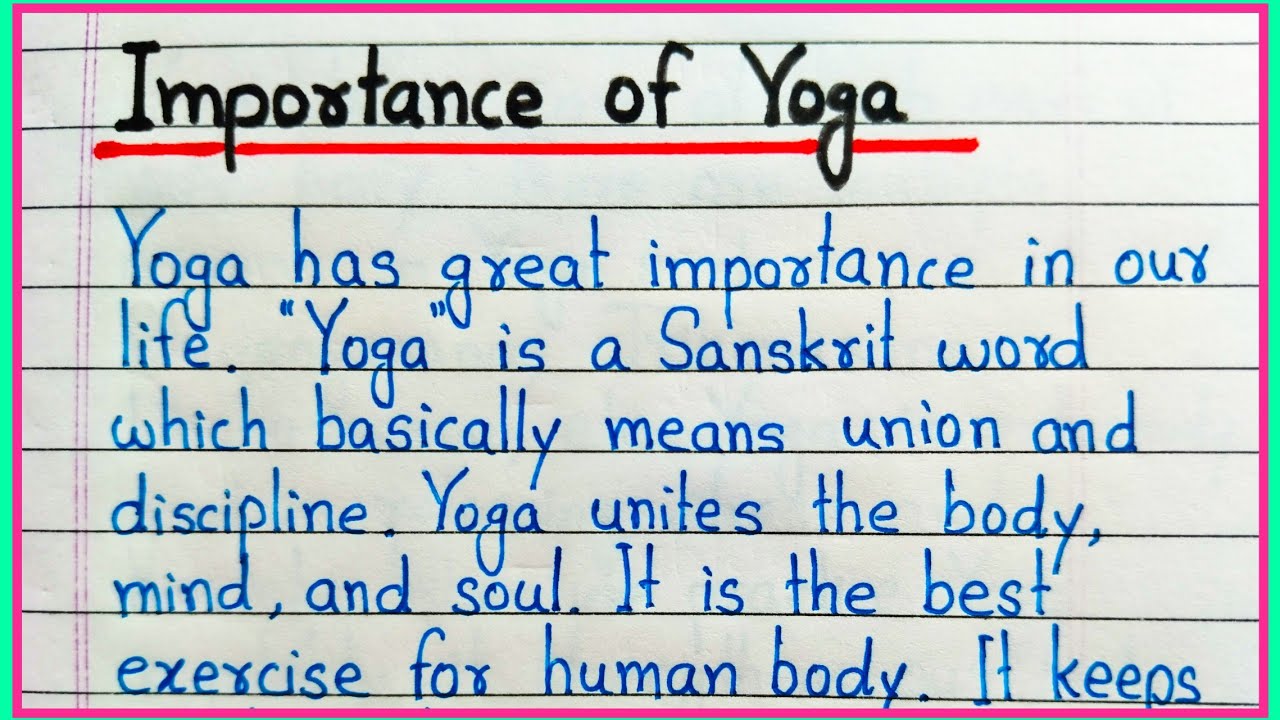 Importance of Yoga
Yoga has great importance in our
life. "Yoga" is a Sanskrit word
which basically means union and
discipline. Yoga unites the body,
mind, and soul. It is the best
exercise for human body. It keeps